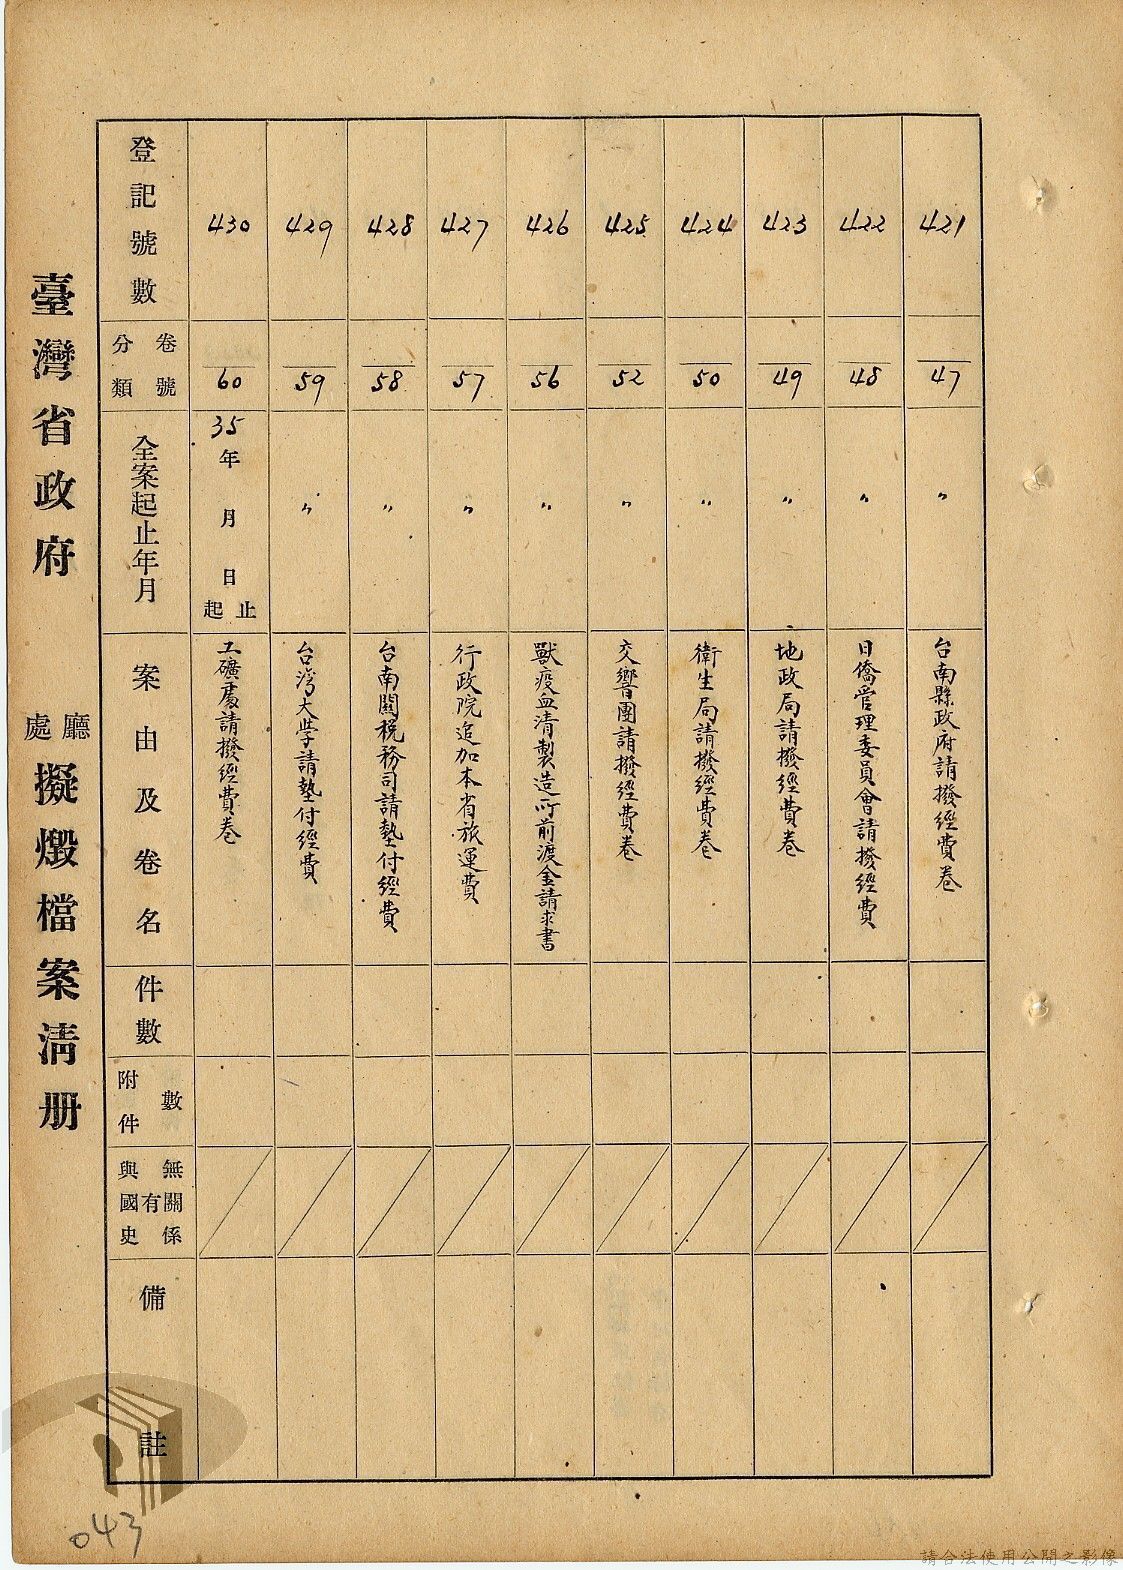 臺灣省政府 廳處 擬燬檔案清册
登記號數
卷號
分類
全案起止年月
案由及卷名
件數
附件數
與國史有無關係
備註
430
60
35年 月 日
起止
工礦處請撥經費卷
429
59
〃
台灣大学請墊付經費
428
58
〃
台南關税務司請墊付經費
427
57
〃
行政院追加本省旅運費
426
56
〃
獸疫血清製造所前渡金請求書
425
52
〃
交響團請撥經費卷
424
50
〃
衛生局請撥經費卷
423
49
〃
地政局請撥經費卷
422
48
〃
日僑管理委員會請撥經費
421
47
〃
台南縣政府請撥經費卷
043
請合法使用公開之影像